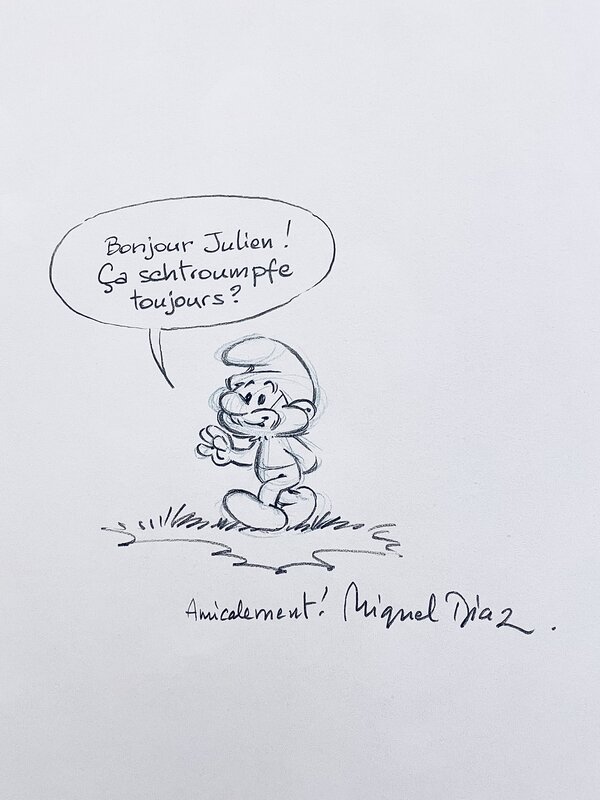 Bonjour Julien !
Ça schtroumpfe
toujours ?
Amicalement ! Miguel Diaz.